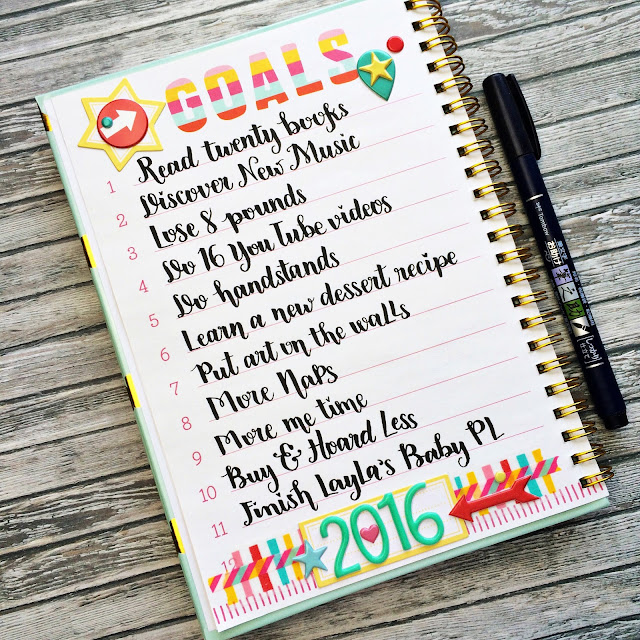 GOALS
1 Read twenty books
2 Discover New Music
3 Lose 8 pounds
4 Do 16 YouTube videos
5 Do handstands
6 Learn a new dessert recipe
7 Put art on the walls
8 More Naps
9 More me time
10 Buy & Hoard Less
11 Finish Layla's Baby PL
12
2016
Tombow